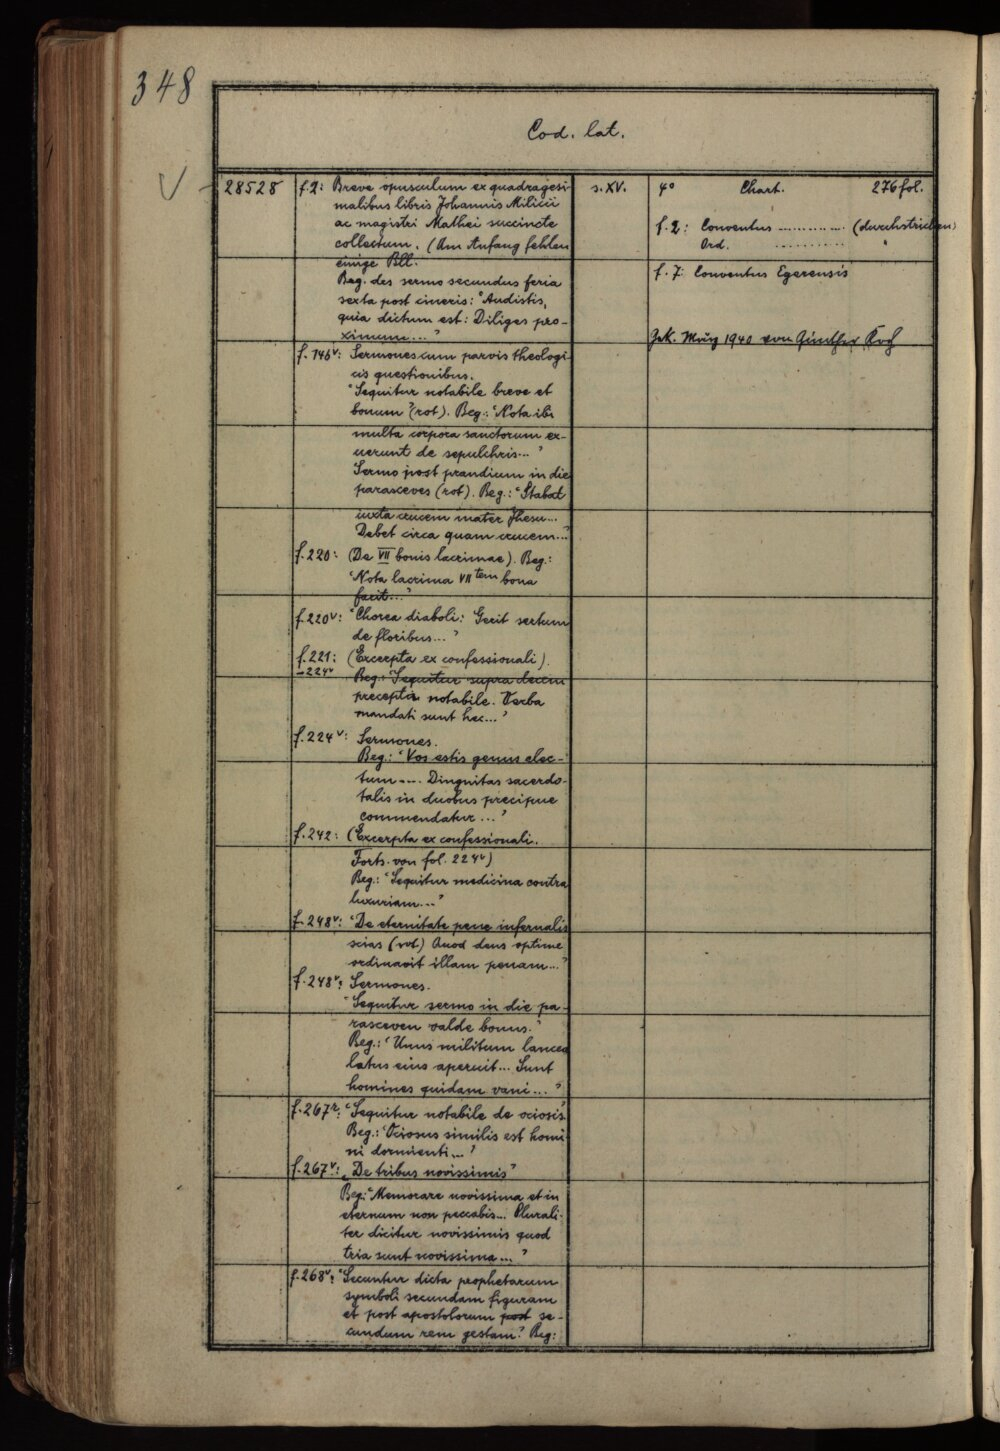 348
Cod. lat.
28528
f.2: Breve opusculum ex quadragesi-
malibus libris Johannis Milicii
ac magistri Mathei succincte
collectum. (Am Anfang fehlen
einige Bll.
Beg. des sermo secundus feria
sexta post cineris: "Audistis,
quia dictum est: Diliges pro-
ximum..."
f. 146v: Sermones cum parvis theologi-
cis questionibus.
"Sequitur notabile breve et
bonum" (rot). Beg.: "Nota ibi
multa corpora sanctorum ex-
uerunt de sepulchris..."
Sermo post prandium in die
parasceves (rot). Beg.: "Stabat
iuxta crucem mater Jhesu...
Debet circa quam crucem..."
f. 220: (De VII bonis lacrimae). Beg.:
"Nota lacrima VII tem bona
facit..."
f. 220v: "Chorea diaboli: Gerit sertum
de floribus..."
f. 221: (Excerpta ex confessionali).
-224v Beg.: "Sequitur supra decem
precepta notabile. Verba
mandati sunt hec..."
f. 224v: Sermones.
Beg.: "Vos estis genus elec-
tum.... Dingnitas sacerdo-
talis in duobus precipue
commendatur..."
f. 242: (Excerpta ex confessionali.
Forts. von fol. 224v)
Beg.: "Sequitur medicina contra
luxuriam..."
f. 248v: "De eternitate pene infernalis
scias (rot) Quod deus optime
ordinavit illam penam..."
f. 248v: Sermones.
"Sequitur sermo in die pa-
rasceven valde bonus."
Beg.: "Unus militum lancea
latus eius aperuit... Sunt
homines quidam vani..."
f. 267r: "Sequitur notabile de ociosis"
Beg.: "Ociosus similis est homi-
ni dormienti..."
f. 267v: "De tribus novissimis"
Beg.: "Memorare novissima et in
eternum non peccabis... Plurali-
ter dicitur novissimis quod
tria sunt novissima..."
f. 268v: "Secuntur dicta prophetarum
symboli secundum figuram
et post apostolorum post se-
cundum rem gestam" Beg:
s. XV.
4° Chart. 276 fol.
f. 2: Conventus ............ (durchstrichen)
Ord. ............ "
f. 7: Conventus Egerensis
Gek. März 1940 von Günther Koch